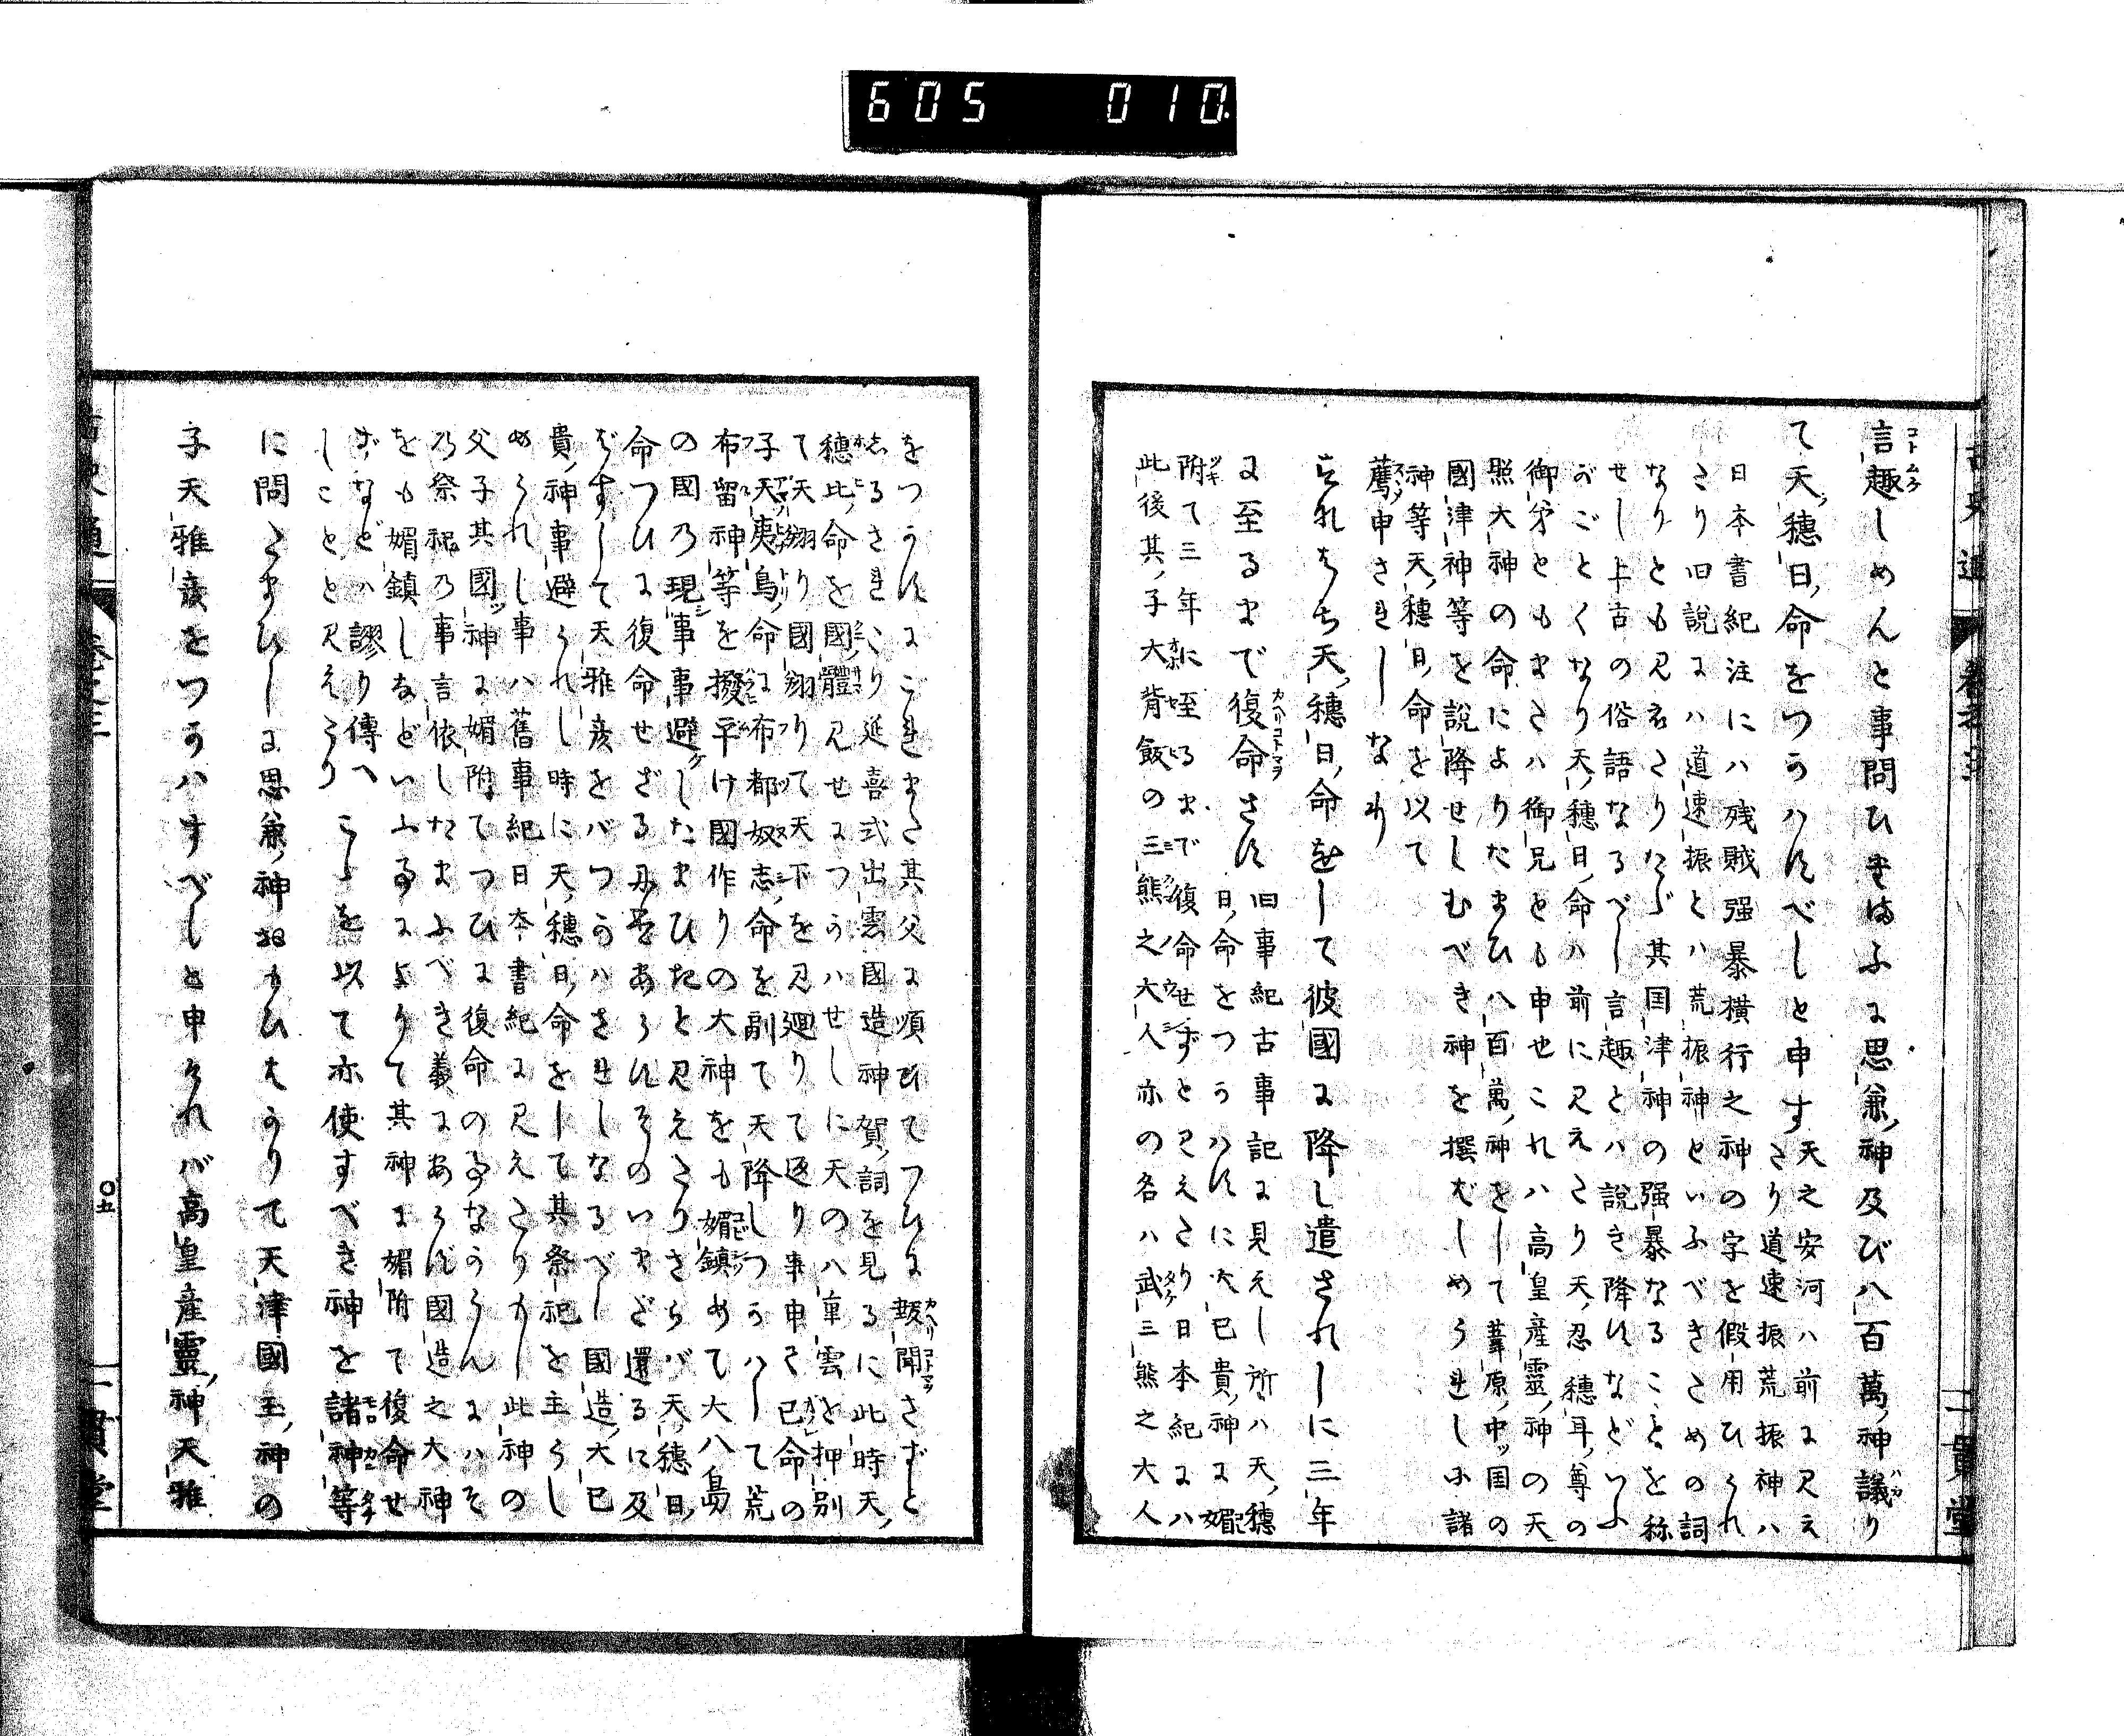 605 010
言趣しめんと事問ひ給ふに思兼神及び八百萬神議り
て天穗日命をつかハすべしと申す 天之安河ハ前に見え
たり道速振荒振神ハ
日本書紀注にハ残賊强暴横行之神の字を假用ひられ
たり旧説にハ道速振とハ荒振神といふべきための詞
なりとも見えたりたゞ其国津神の强暴なることを称
せし上古の俗語なるべし言趣とハ説き降すなどいふ
がごとくなり天穗日命ハ前に見えたり天忍穗耳尊の
御弟ともまたハ御兄とも申也これハ高皇産靈神の天
照大神の命によりたまひ八百萬神をして葦原中国の
國津神等を説降せしむべき神を撰ばしめられしに諸
神等天穗日命を以て
薦申されしなり
すなはち天穗日命をして彼國に降し遣されしに三年
に至るまで復命さず 旧事紀古事記に見えし所ハ天穗
日命をつかハすに大已貴神に媚
附て三年に至るまで復命せずと見えたり日本紀にハ
此後其子大背飯の三熊之大人亦の名ハ武三熊之大人
をつかはすにこれまた其父に順ひてつひに報聞さずと
しるされたり延喜式出雲國造神賀詞を見るに此時天
穗比命を國體見せにつかハせしに天の八重雲を押別
て天翔り國翔りて天下を見廻りて返り事申て已命の
子天夷鳥命に布都奴志命を副て天降しつかハして荒
布留神等を撥平け國作りの大神をも媚鎮めて大八島
の國乃現事事避しなまひたと見えたりさらバ天穗日
命つひに復命せざるにハあらずそのいまだ還るに及
ばずして天雅彦をバつかハされしなるべし國造大已
貴神事避られし時に天穗日命をして其祭祀を主らし
められし事ハ舊事紀日本書紀に見えたりもし此神の
父子其國神に媚附てつひに復命の事なからんにハそ
乃祭祀乃事言依したまふべき義にあらず國造之大神
をも媚鎮しなどいふ事によりて其神に媚附て復命せ
ずなどハ謬り傳へ
しことと見えたり こゝを以て亦使すべき神を諸神等
に問たまひしに思兼神おもひはかりて天津國玉神の
子天雅彦をつかハすべしと申されバ高皇産靈神天雅
〇五
二貫堂